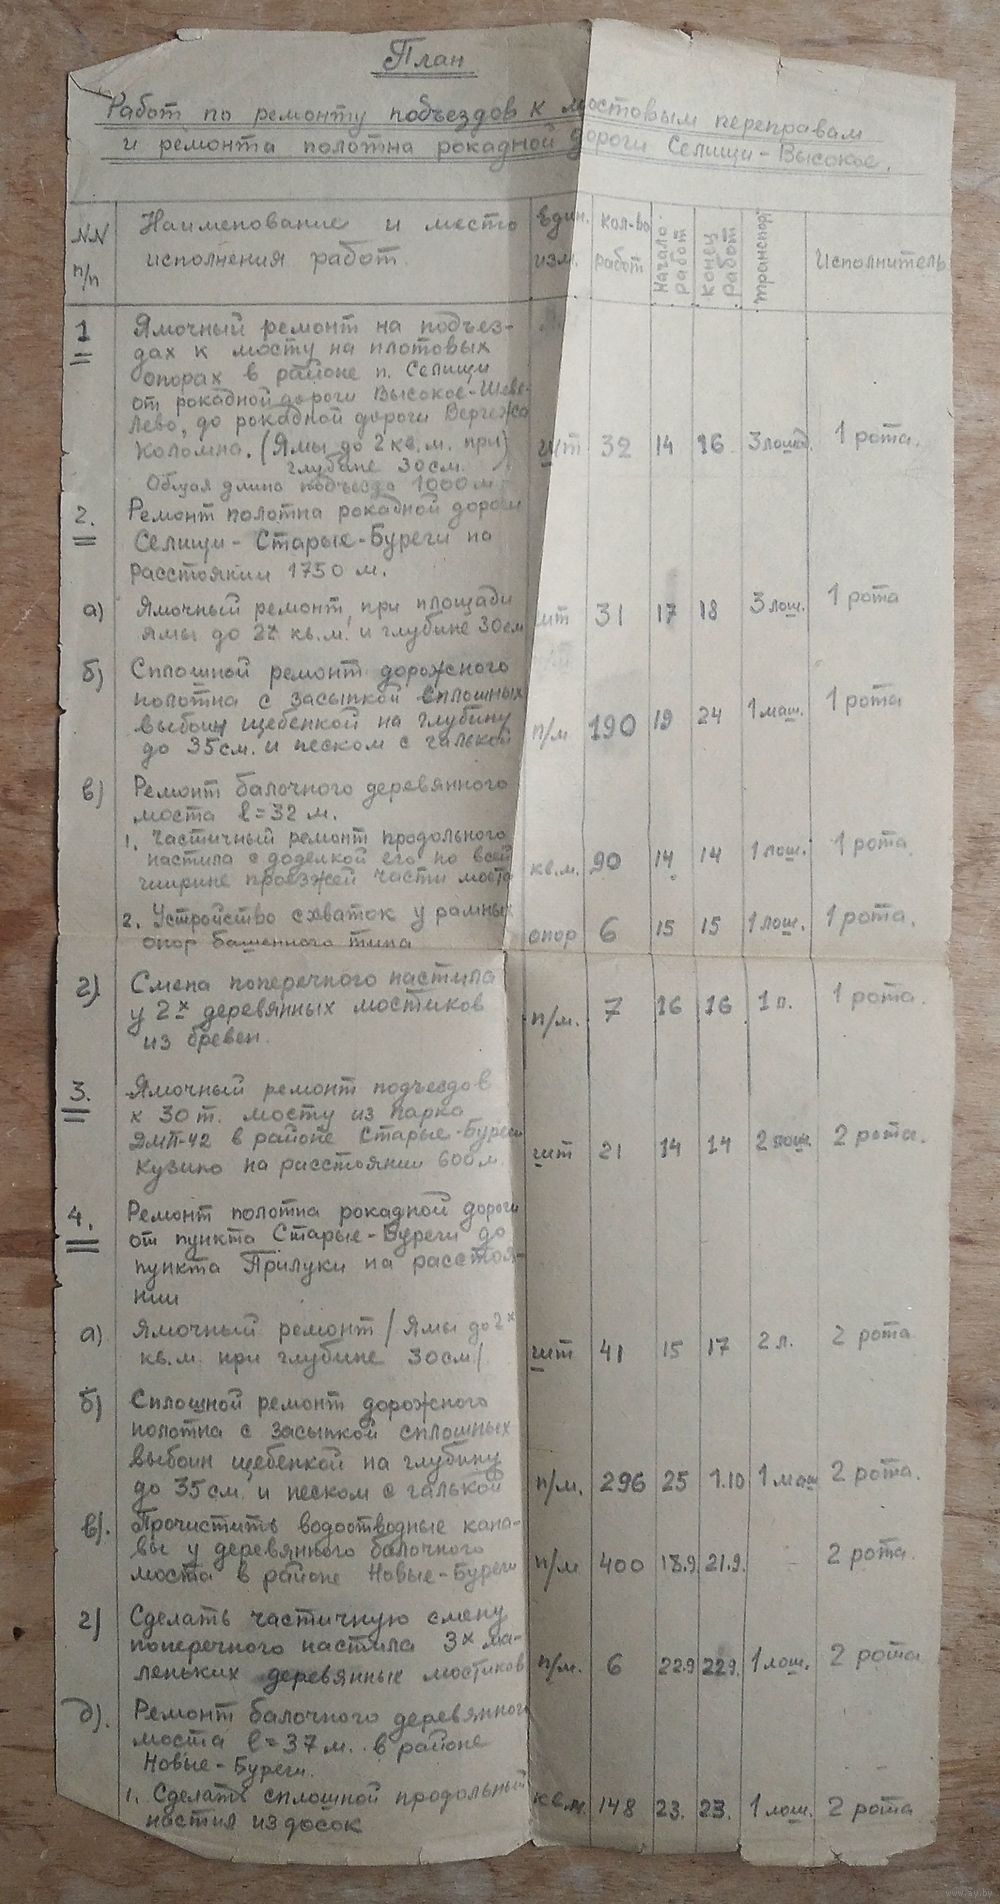 План
Работ по ремонту подъездов к мостовым переправам
и ремонта полотна рокадной дороги Селищи-Высокое.
NN п/п
Наименование и место исполнения работ.
Един. изм.
кол-во работ
Начало работ
Конец работ
транспорт
Исполнитель
1
Ямочный ремонт на подъез-
дах к мосту на плотовых
опорах в районе п. Селищи
от рокадной дороги Высокое-Шеве-
лево, до рокадной дороги Вергежа
Коломна. (Ямы до 2 кв. м. при) шт 32 14 16 3 лошад. 1 рота.
глубине 30 см.
Общая длина подъезда 1000 м
2. Ремонт полотна рокадной дороги
Селищи - Старые-Буреги на
расстоянии 1750 м.
а) Ямочный ремонт, при площади шт 31 17 18 3 лош. 1 рота
ямы до 2х кв. м. и глубине 30 см
б) Сплошной ремонт дорожного
полотна с засыпкой сплошных
выбоин щебенкой на глубину п/м. 190 19 24 1 маш. 1 рота
до 35 см. и песком с галькой
в) Ремонт балочного деревянного
моста l=32 м.
1. Частичный ремонт продольного
настила с доделкой его по всей кв.м. 90 14 14 1 лош. 1 рота.
ширине проезжей части моста
2. Устройство схваток у рамных опор 6 15 15 1 лош. 1 рота.
опор башенного типа
г) Смена поперечного настила
у 2х деревянных мостиков п/м. 7 16 16 1 л. 1 рота.
из бревен.
3. Ямочный ремонт подъездов
к 30 т. мосту из парка
ДМП-42 в районе Старые-Буреги шт 21 14 14 2 лош. 2 рота.
Кузино на расстоянии 600 м.
4. Ремонт полотна рокадной дороги
от пункта Старые-Буреги до
пункта Прилуки на расстоя-
нии
а) Ямочный ремонт / Ямы до 2х шт 41 15 17 2 л. 2 рота
кв. м. при глубине 30 см/.
б) Сплошной ремонт дорожного
полотна с засыпкой сплошных
выбоин щебенкой на глубину п/м. 296 25 1.10 1 маш 2 рота.
до 35 см. и песком с галькой
в). Прочистить водоотводные кана-
вы у деревянного балочного п/м 400 18.9 21.9. 2 рота.
моста в районе Новые-Буреги
г) Сделать частичную смену
поперечного настила 3х ма- п/м. 6 22.9 22.9. 1 лош. 2 рота
леньких деревянных мостиков
д). Ремонт балочного деревянного
моста l=37 м. в районе
Новые-Буреги.
1. Сделать сплошной продольный кв.м. 148 23. 23. 1 лош. 2 рота
настил из досок
www.ay.by